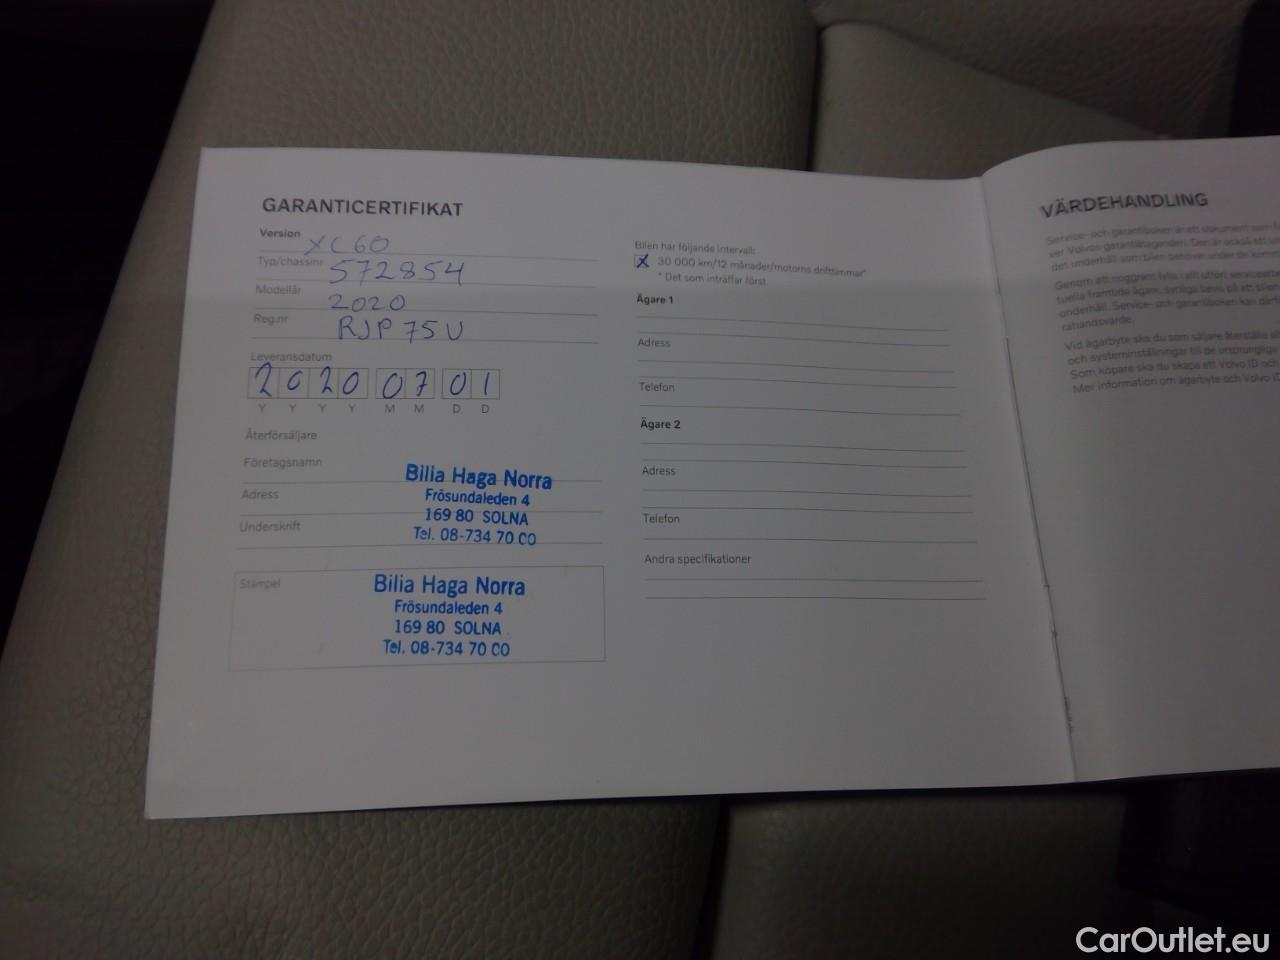 GARANTICERTIFIKAT
Version XC60
Typ/chassinr 572854
Modellår 2020
Reg.nr RJP 75U
Leveransdatum
2020 07 01
Y Y Y Y M M D D
Återförsäljare
Företagsnamn
Adress
Underskrift
Bilia Haga Norra
Frösundaleden 4
169 80 SOLNA
Tel. 08-734 70 00
Stämpel
Bilia Haga Norra
Frösundaleden 4
169 80 SOLNA
Tel. 08-734 70 00
Bilen har följande intervall:
X 30 000 km/12 månader/motorns drifttimmar*
* Det som inträffar först
Ägare 1
Adress
Telefon
Ägare 2
Adress
Telefon
Andra specifikationer
VÄRDEHANDLING
Service- och garantiboken är ett dokument som
ver Volvos garantiåtaganden. Den är också ett
det underhåll som bilen behöver under de
Genom att noggrant fylla i allt utfört
tuella framtida ägare, synliga bevis på att bilen
underhåll. Service- och garantiboken kan
rahandsvärde.
Vid ägarbyte ska du som säljare återställa
och systeminställningar till de ursprungliga
Som köpare ska du skapa ett Volvo ID och
Mer information om ägarbyte och Volvo ID
CarOutlet.eu